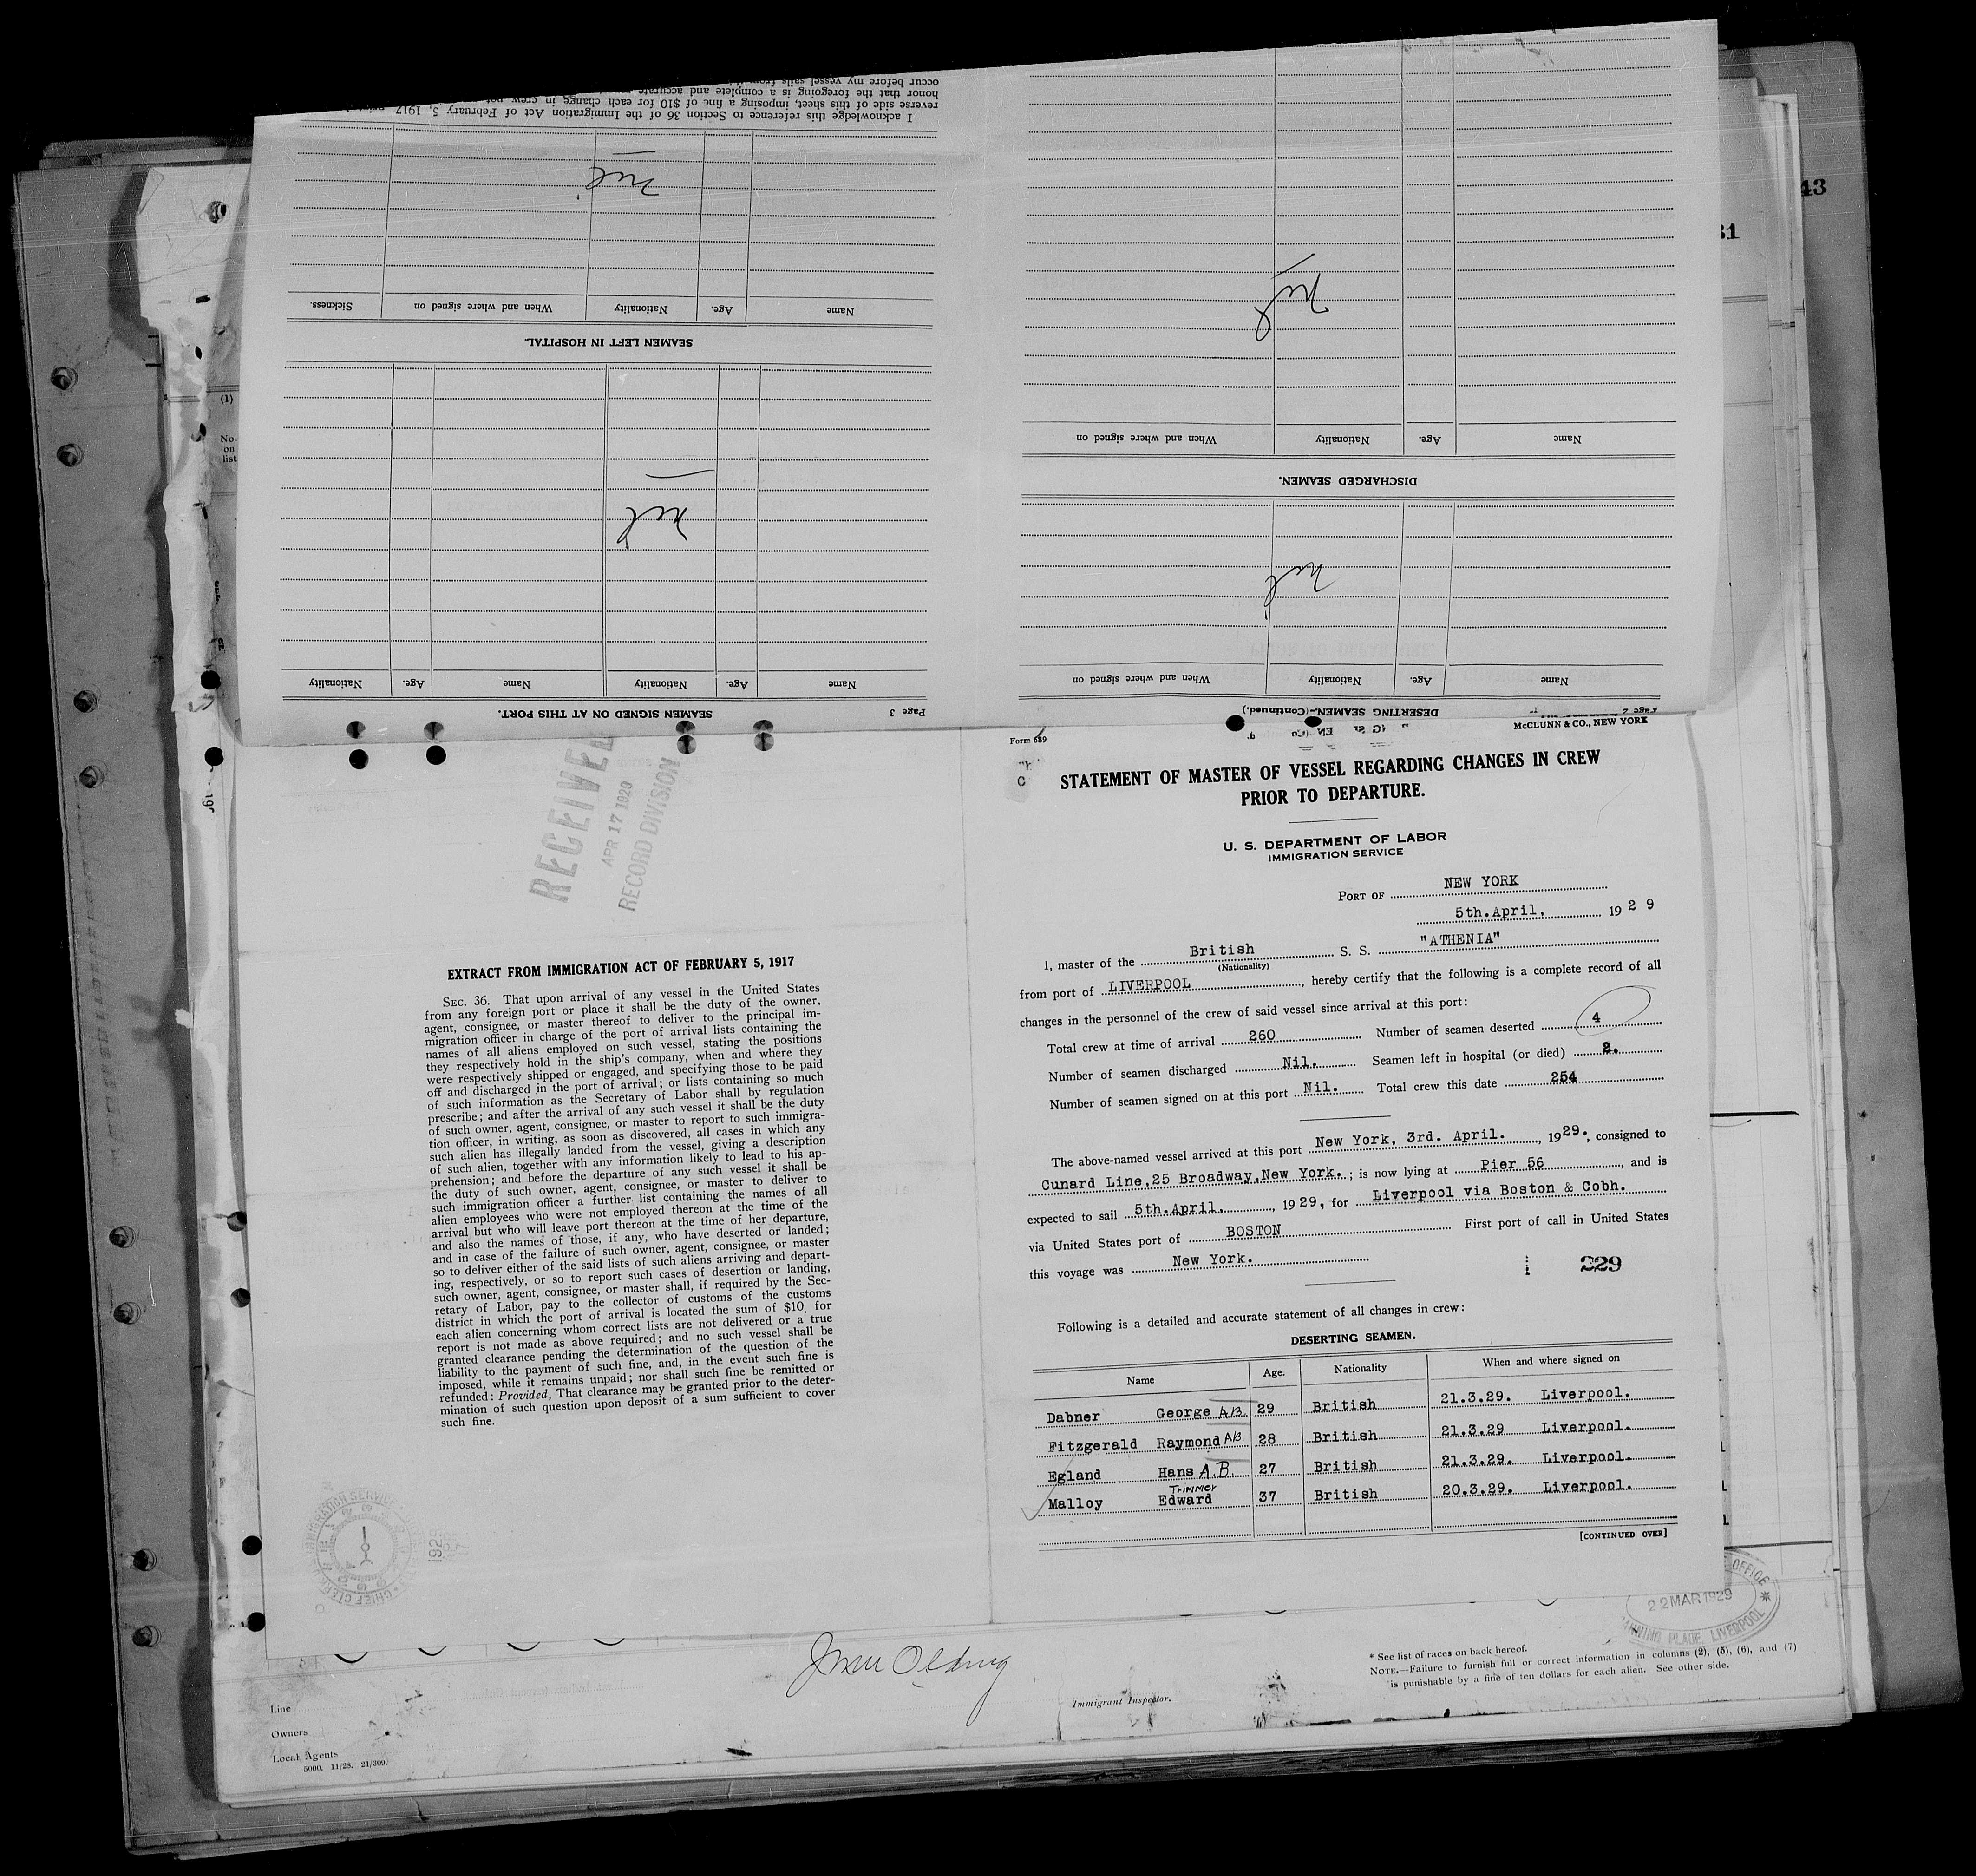 occur before my vessel sails from
honor that the foregoing is a complete and accurate
reverse side of this sheet, imposing a fine of $10 for each change in crew not
I acknowledge this reference to Section 36 of the Immigration Act of February 5, 1917
nil
Name Age. Nationality When and where signed on Sickness.
SEAMEN LEFT IN HOSPITAL.
nil
Name Age. Nationality Name Age. Nationality
Page 3 SEAMEN SIGNED ON AT THIS PORT.
nil
Name Age. Nationality When and where signed on
DISCHARGED SEAMEN.
nil
Name Age. Nationality When and where signed on
Page 2 DESERTING SEAMEN.—(Continued.)
43
31
(1)
No.
on
list
RECEIVED
APR 17 1929
RECORD DIVISION
EXTRACT FROM IMMIGRATION ACT OF FEBRUARY 5, 1917
SEC. 36. That upon arrival of any vessel in the United States
from any foreign port or place it shall be the duty of the owner,
agent, consignee, or master thereof to deliver to the principal im-
migration officer in charge of the port of arrival lists containing the
names of all aliens employed on such vessel, stating the positions
they respectively hold in the ship's company, when and where they
were respectively shipped or engaged, and specifying those to be paid
off and discharged in the port of arrival; or lists containing so much
of such information as the Secretary of Labor shall by regulation
prescribe; and after the arrival of any such vessel it shall be the duty
of such owner, agent, consignee, or master to report to such immigra-
tion officer, in writing, as soon as discovered, all cases in which any
such alien has illegally landed from the vessel, giving a description
of such alien, together with any information likely to lead to his ap-
prehension; and before the departure of any such vessel it shall be
the duty of such owner, agent, consignee, or master to deliver to
such immigration officer a further list containing the names of all
alien employees who were not employed thereon at the time of the
arrival but who will leave port thereon at the time of her departure,
and also the names of those, if any, who have deserted or landed;
and in case of the failure of such owner, agent, consignee, or master
so to deliver either of the said lists of such aliens arriving and depart-
ing, respectively, or so to report such cases of desertion or landing,
such owner, agent, consignee, or master shall, if required by the Sec-
retary of Labor, pay to the collector of customs of the customs
district in which the port of arrival is located the sum of $10 for
each alien concerning whom correct lists are not delivered or a true
report is not made as above required; and no such vessel shall be
granted clearance pending the determination of the question of the
liability to the payment of such fine, and, in the event such fine is
imposed, while it remains unpaid; nor shall such fine be remitted or
refunded: Provided, That clearance may be granted prior to the deter-
mination of such question upon deposit of a sum sufficient to cover
such fine.
Form 689 McCLUNN & CO., NEW YORK
STATEMENT OF MASTER OF VESSEL REGARDING CHANGES IN CREW
PRIOR TO DEPARTURE.
U. S. DEPARTMENT OF LABOR
IMMIGRATION SERVICE
PORT OF NEW YORK
5th.April, 1929
I, master of the British S. S. "ATHENIA"
(Nationality)
from port of LIVERPOOL, hereby certify that the following is a complete record of all
changes in the personnel of the crew of said vessel since arrival at this port:
Total crew at time of arrival 260 Number of seamen deserted 4
Number of seamen discharged Nil. Seamen left in hospital (or died) 2.
Number of seamen signed on at this port Nil. Total crew this date 254
The above-named vessel arrived at this port New York, 3rd. April. , 1929., consigned to
Cunard Line,25 Broadway,New York. ; is now lying at Pier 56 , and is
expected to sail 5th.April, , 1929, for Liverpool via Boston & Cobh.
via United States port of BOSTON First port of call in United States
this voyage was New York.
229
Following is a detailed and accurate statement of all changes in crew:
DESERTING SEAMEN.
Name Age. Nationality When and where signed on
Dabner George A.B. 29 British 21.3.29. Liverpool.
Fitzgerald Raymond AB 28 British 21.3.29 Liverpool.
Egland Hans A.B. 27 British 21.3.29. Liverpool.
Malloy Edward Trimmer 37 British 20.3.29. Liverpool.
[CONTINUED OVER]
OFFICE
22 MAR 1929
CANNING PLACE LIVERPOOL
* See list of races on back hereof.
NOTE.—Failure to furnish full or correct information in columns (2), (5), (6), and (7)
is punishable by a fine of ten dollars for each alien. See other side.
Immigrant Inspector.
Line
Owners
Local Agents
5000. 11/28. 21/309.